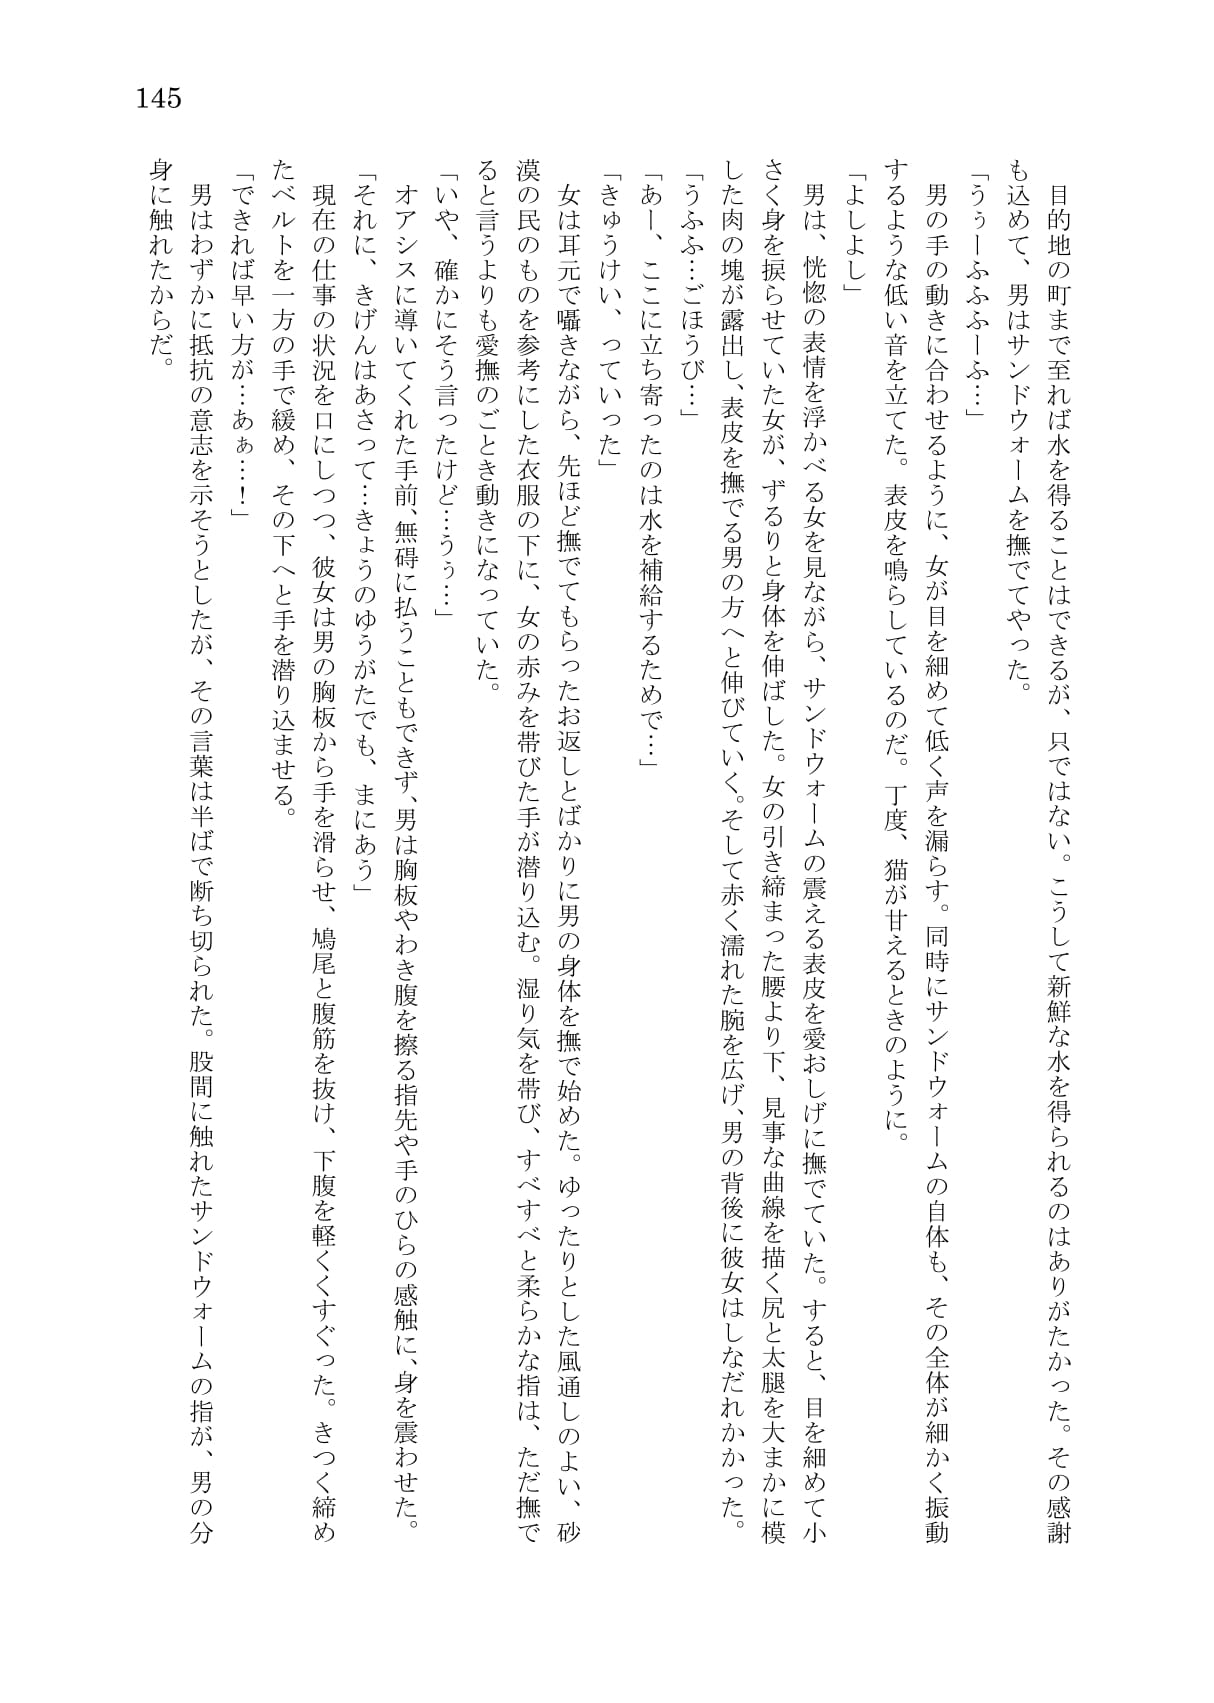 145
　目的地の町まで至れば水を得ることはできるが、只ではない。こうして新鮮な水を得られるのはありがたかった。その感謝
も込めて、男はサンドウォームを撫でてやった。
「うぅーふふふーふ…」
　男の手の動きに合わせるように、女が目を細めて低く声を漏らす。同時にサンドウォームの自体も、その全体が細かく振動
するような低い音を立てた。表皮を鳴らしているのだ。丁度、猫が甘えるときのように。
「よしよし」
　男は、恍惚の表情を浮かべる女を見ながら、サンドウォームの震える表皮を愛おしげに撫でていた。すると、目を細めて小
さく身を捩らせていた女が、ずるりと身体を伸ばした。女の引き締まった腰より下、見事な曲線を描く尻と太腿を大まかに模
した肉の塊が露出し、表皮を撫でる男の方へと伸びていく。そして赤く濡れた腕を広げ、男の背後に彼女はしなだれかかった。
「うふふ…ごほうび…」
「あー、ここに立ち寄ったのは水を補給するためで…」
「きゅうけい、っていった」
　女は耳元で囁きながら、先ほど撫でてもらったお返しとばかりに男の身体を撫で始めた。ゆったりとした風通しのよい、砂
漠の民のものを参考にした衣服の下に、女の赤みを帯びた手が潜り込む。湿り気を帯び、すべすべと柔らかな指は、ただ撫で
ると言うよりも愛撫のごとき動きになっていた。
「いや、確かにそう言ったけど…うぅ…」
　オアシスに導いてくれた手前、無碍に払うこともできず、男は胸板やわき腹を擦る指先や手のひらの感触に、身を震わせた。
「それに、きげんはあさって…きょうのゆうがたでも、まにあう」
　現在の仕事の状況を口にしつつ、彼女は男の胸板から手を滑らせ、鳩尾と腹筋を抜け、下腹を軽くくすぐった。きつく締め
たベルトを一方の手で緩め、その下へと手を潜り込ませる。
「できれば早い方が…あぁ…！」
　男はわずかに抵抗の意志を示そうとしたが、その言葉は半ばで断ち切られた。股間に触れたサンドウォームの指が、男の分
身に触れたからだ。